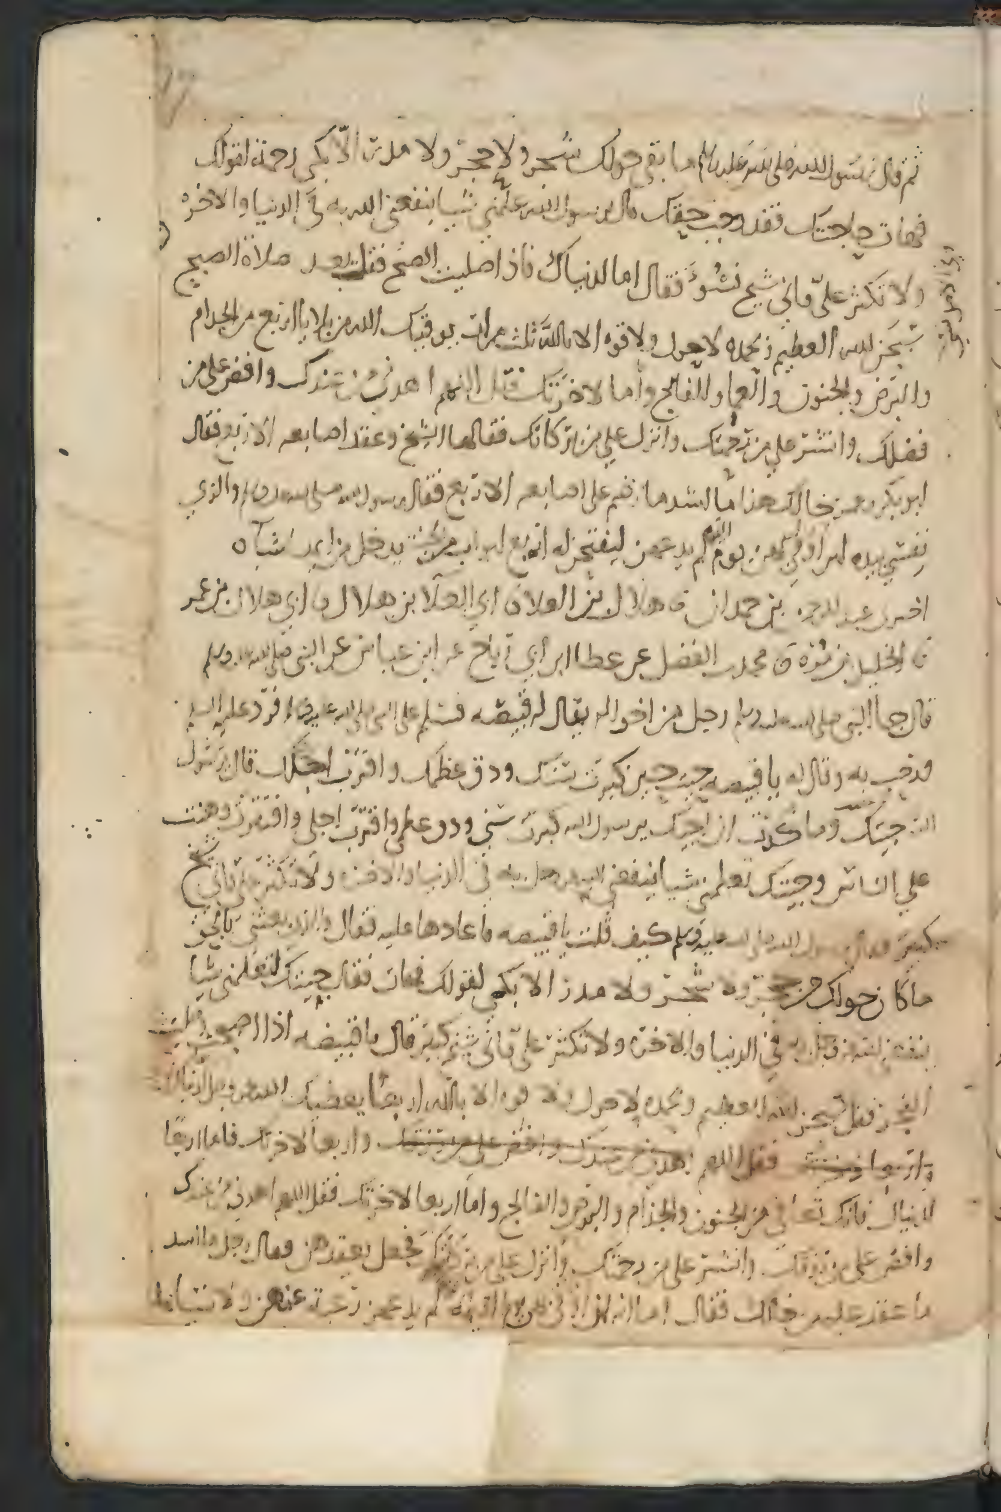 ثم قال رسول الله صلى الله عليه وسلم ما بقي حولك شجر ولا حجر ولا مدر الا بكى رحمة لقولك
فهات حاجتك فقد وجب حقك قال يرسول الله علمني شيا ينفعني الله به في الدنيا والاخره
ولا تكثر علي فاني شيخ نسو فقال اما لدنياك فاذا صليت الصبح فقل بعد صلاة الصبح
سبحن الله العظيم وبحمده لا حول ولا قوه الا بالله ثلث مرات يوقيك الله من بلايا اربع من الجذام
والبرص والجنون والعما والفالج واما لاخرتك فقل اللهم اهدني من عندك وافض علي من
فضلك وانشر علي من رحمتك وانزل علي من بركاتك فقالها الشيخ وعقد اصابعه الاربع فقال
ابو بكر وعمر خالك هذا ما اشد ما ضم على اصابعه الاربع فقال رسول الله صلى الله عليه وسلم والذي
نفسي بيده لين اوفى بهن يوم القيمه لم يدعهن ليفتحن له اربع ابواب من الجنة يدخل من ايهن شاء
اخبرنا عبد الرحمن بن حمدان ن هلال بن العلا ن ابي العلا بن هلال ن ابي هلال بن عمر
ن الخليل بن مره ن محمد بن الفضل عن عطا ابن ابي رباح عن ابن عباس عن النبي صلى الله عليه وسلم
قال جا الى النبي صلى الله عليه وسلم رجل من اخواله يقال له قبيصه فسلم على النبي صلى الله عليه وسلم فرد عليه السلم
ورحب به وقال له يا قبيصه جيت حين كبرت سنك ودق عظمك واقترب اجلك قال يرسول
الله جيتك وما كدت ان اجيك يرسول الله كبرت سني ودق عظمي واقترب اجلي وافتقرت وهنت
على الناس وجيتك تعلمني شيا ينفعني الله عز وجل به في الدنيا والاخره ولا تكثر علي فاني شيخ
كبير فقال رسول الله صلى الله عليه وسلم كيف قلت يا قبيصه فاعادها عليه فقال والذي بعثني بالحق
ما كان حولك من حجر ولا شجر ولا مدر الا بكى لقولك فهات فقال جيتك لتعلمني شيا
ينفعني الله عز وجل به في الدنيا والاخره ولا تكثر علي فاني شيخ كبير قال يا قبيصه اذا اصبحت وصليت
الفجر فقل سبحن الله العظيم وبحمده لا حول ولا قوه الا بالله اربعا يعطيك الله عز وجل
واربعا لاخرتك فقل اللهم اهدني من عندك وافض علي من رزقك واربعا لاخرتك فاما اربعا
لدنياك فانك تعافى من الجنون والجذام والبرص والفالج واما اربعا لاخرتك فقل اللهم اهدني من عندك
وافض علي من رزقك وانشر علي من رحمتك وانزل علي من بركتك فجعل يعقدهن فقال رجل ما اشد
ما عقد عليهن خالك فقال اما انه لين وافى بهن يوم القيمة لم يدعهن رغبة عنهن ولا نسيانا